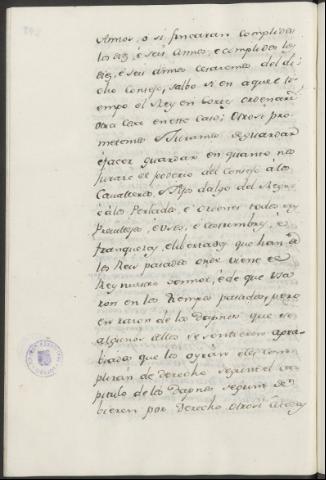 Annos, o si fincaran complidos
los diez, é seis Annos, e complidos los
diez, é seis Annos cesaremos del di-
cho Consejo, salvo si en aquel ti-
empo el Rey en Cortes ordenare
otra cosa en este caso; Otrosi pro-
metemos, e Juramos de guardar
é facer guardar en quanto nos
durare el poderio del Consejo á los
Cavalleros, e Fijos dalgo del Reyno
é á los Perlados, é Ordenes todos sus
Previllejos, é usos, e costumbres, e
franquezas, e libertades que han de
los Reyes pasados onde viene el
Rey nuestro Señor, é de que usa-
ron en los tiempos pasados, pero
en razon de los Dapnos que
algunos dellos se sintieren agra-
biados que los oyran, e les com-
pliran de derecho segunt el ca-
pitulo de los Dapnos segunt de-
bieren por Derecho, Otrosi